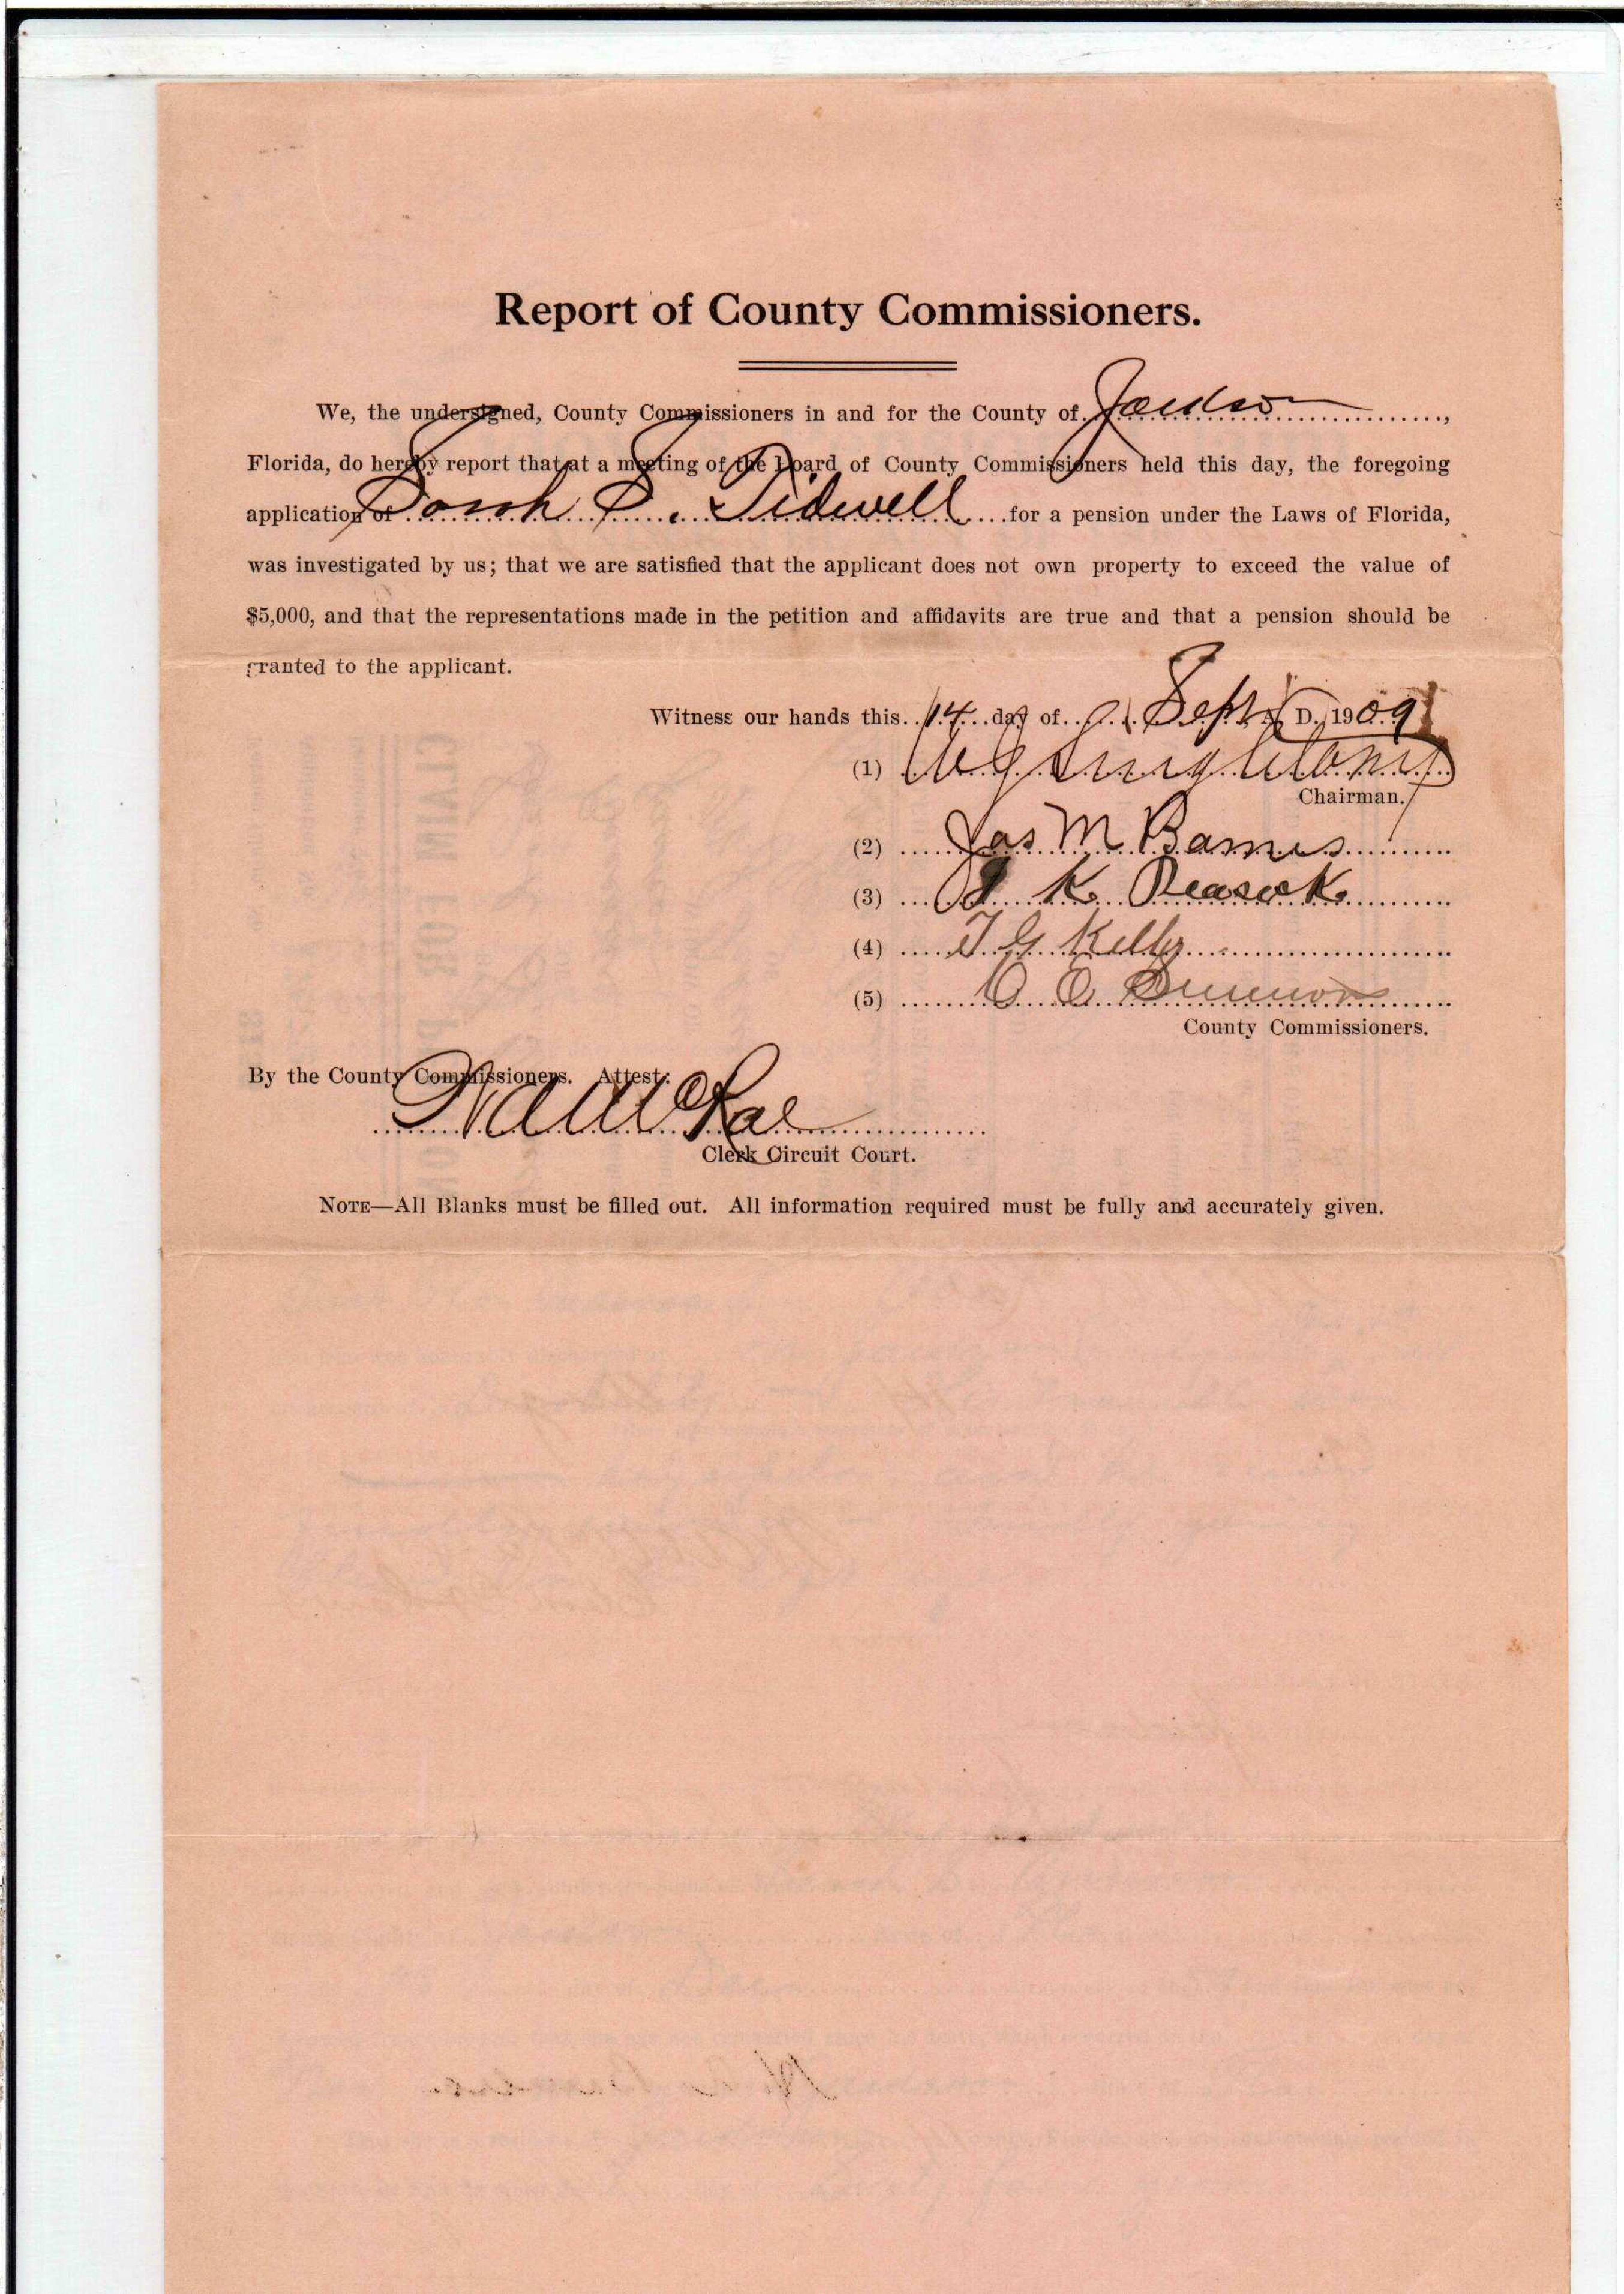 Report of County Commissioners.
We, the undersigned, County Commissioners in and for the County of Jackson,
Florida, do hereby report that at a meeting of the Board of County Commissioners held this day, the foregoing
application of Sarah S. Tidwell for a pension under the Laws of Florida,
was investigated by us; that we are satisfied that the applicant does not own property to exceed the value of
$5,000, and that the representations made in the petition and affidavits are true and that a pension should be
granted to the applicant.
Witness our hands this 14 day of Sept A. D. 1909
(1)
Chairman.
(2) Jas M Barnes
(3) J K Peacock
(4) T G Kelly
(5) C C
County Commissioners.
By the County Commissioners. Attest:
McRae
Clerk Circuit Court.
NOTE—All Blanks must be filled out. All information required must be fully and accurately given.